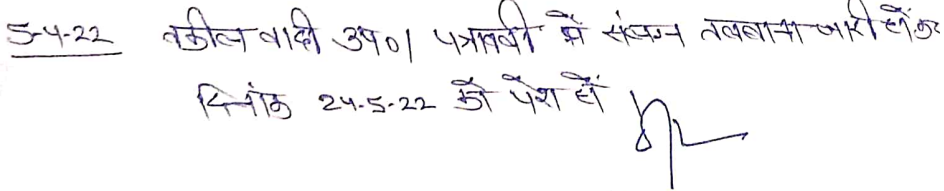 5-4-22 वकील वादी उप०। पत्रावली में संलग्न तलवाना जारी होंकर
दिनांक 24-5-22 कों पेंश हों